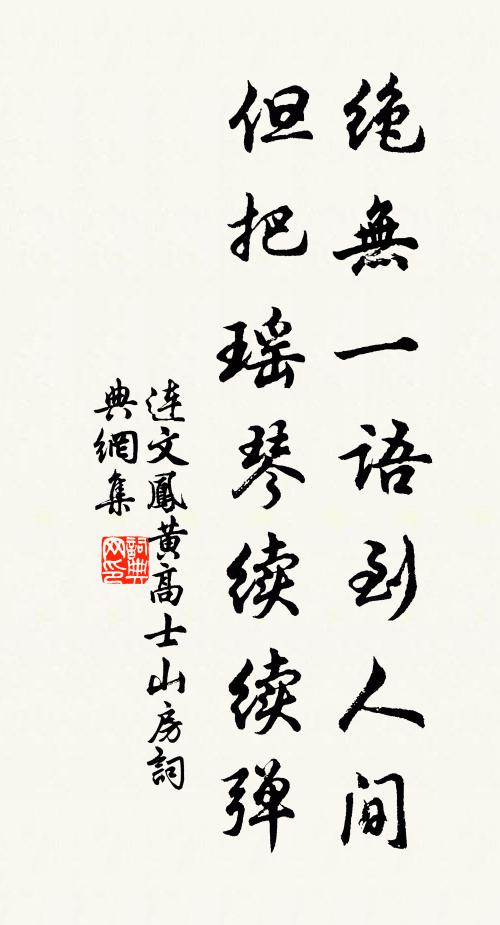 绝無一語到人间
但把瑶琴续续弹
连文鳳黄高士山房詞
典網集
詞典
网印